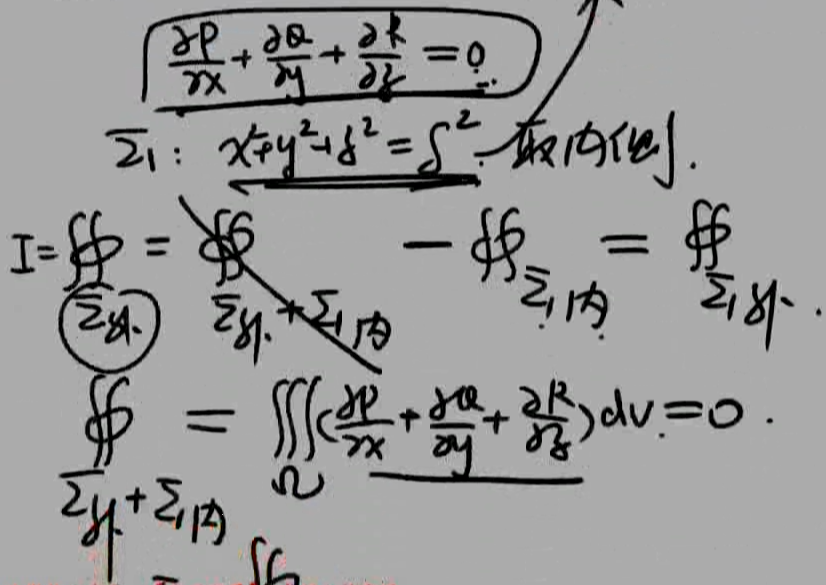 ∂P/∂x + ∂Q/∂y + ∂R/∂z = 0
Σ₁: x²+y²+z² = δ². 取内侧.
I = ∯_Σ外. = ∯_Σ外.+Σ₁内 − ∯_Σ₁内 = ∯_Σ₁外.
∯_Σ外+Σ₁内 = ∭_Ω (∂P/∂x + ∂Q/∂y + ∂R/∂z) dv = 0.